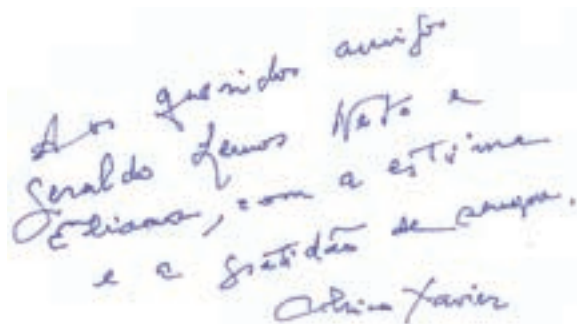 Aos queridos amigos
Geraldo Lemos Neto e
Eliana, com a estima
e a gratidão de sempre.
Xavier